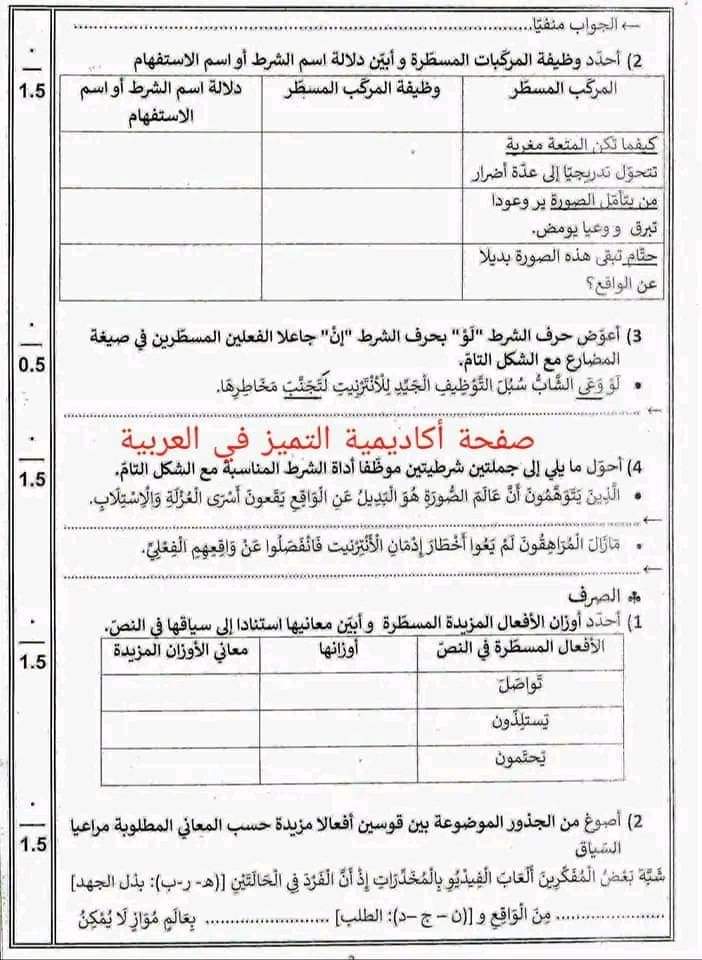 ← الجواب منفيّا
2) أحدّد وظيفة المركّبات المسطّرة و أبيّن دلالة اسم الشرط أو اسم الاستفهام
1.5
المركّب المسطّر
وظيفة المركّب المسطّر
دلالة اسم الشرط أو اسم
الاستفهام
كيفما تكن المتعة مغرية
تتحوّل تدريجيّا إلى عدّة أضرار
من يتأمّل الصورة ير وعودا
تبرق و وعيا يومض.
حتّام تبقى هذه الصورة بديلا
عن الواقع؟
3) أعوّض حرف الشرط "لَوْ" بحرف الشرط "إنْ" جاعلا الفعلين المسطّرين في صيغة
المضارع مع الشكل التامّ.
0.5
• لَوْ وَعَى الشَّابُّ سُبُلَ التَّوْظِيفِ الْجَيِّدِ لِلْأَنْتَرْنِيتِ لَتَجَنَّبَ مَخَاطِرِهَا.
←
صفحة أكاديمية التميز في العربية
4) أحوّل ما يلي إلى جملتين شرطيتين موظّفا أداة الشرط المناسبة مع الشكل التامّ.
1.5
• الَّذِينَ يَتَوَهَّمُونَ أَنَّ عَالَمَ الصُّورَةِ هُوَ الْبَدِيلُ عَنِ الْوَاقِعِ يَقَعونَ أَسْرَى الْعُزْلَةِ وَالْاِسْتِلَابِ.
←
• مَازَالَ الْمُرَاهِقُونَ لَمْ يَعُوا أَخْطَارَ إِدْمَانِ الْأَنْتِرْنيت فَانْفَصَلُوا عَنْ وَاقِعِهِم الْفِعْلِيِّ.
←
الصرف
1) أحدّد أوزان الأفعال المزيدة المسطّرة و أبيّن معانيها استنادا إلى سياقها في النصّ.
1.5
الأفعال المسطّرة في النصّ
أوزانها
معاني الأوزان المزيدة
تَواصَلَ
يَستلِذّون
يَحتَمون
2) أصوغ من الجذور الموضوعة بين قوسين أفعالا مزيدة حسب المعاني المطلوبة مراعيا
السّياق
1.5
شَبَّهَ بَعْضُ الْمُفَكِّرِينَ أَلْعَابَ الْفِيدْيُو بِالْمُخَدِّرَاتِ إِذْ أَنَّ الْفَرْدَ فِي الْحَالَتَيْنِ [(هـ- ر-ب): بذل الجهد]
مِنَ الْوَاقِعِ و [(ن – ج –د): الطلب] بِعَالَمٍ مُوَازٍ لَا يُمْكِنُ